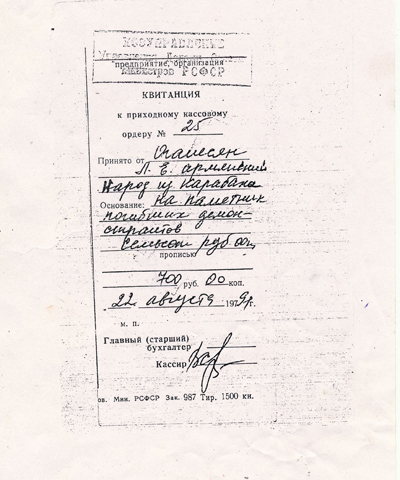 ХОЗУПРАВЛЕНИЕ
предприятие, организация
Министров РСФСР
КВИТАНЦИЯ
к приходному кассовому
ордеру № 25
Принято от Оганесян
Л. Е. армянский
народ из Карабаха
Основание: на памятник
погибших демон-
странтов
Семьсот руб 00
прописью
700 руб. 00 коп.
22 августа 197
м. п.
Главный (старший)
бухгалтер
Кассир
ов. Мин. РСФСР Зак. 987 Тир. 1500 кн.